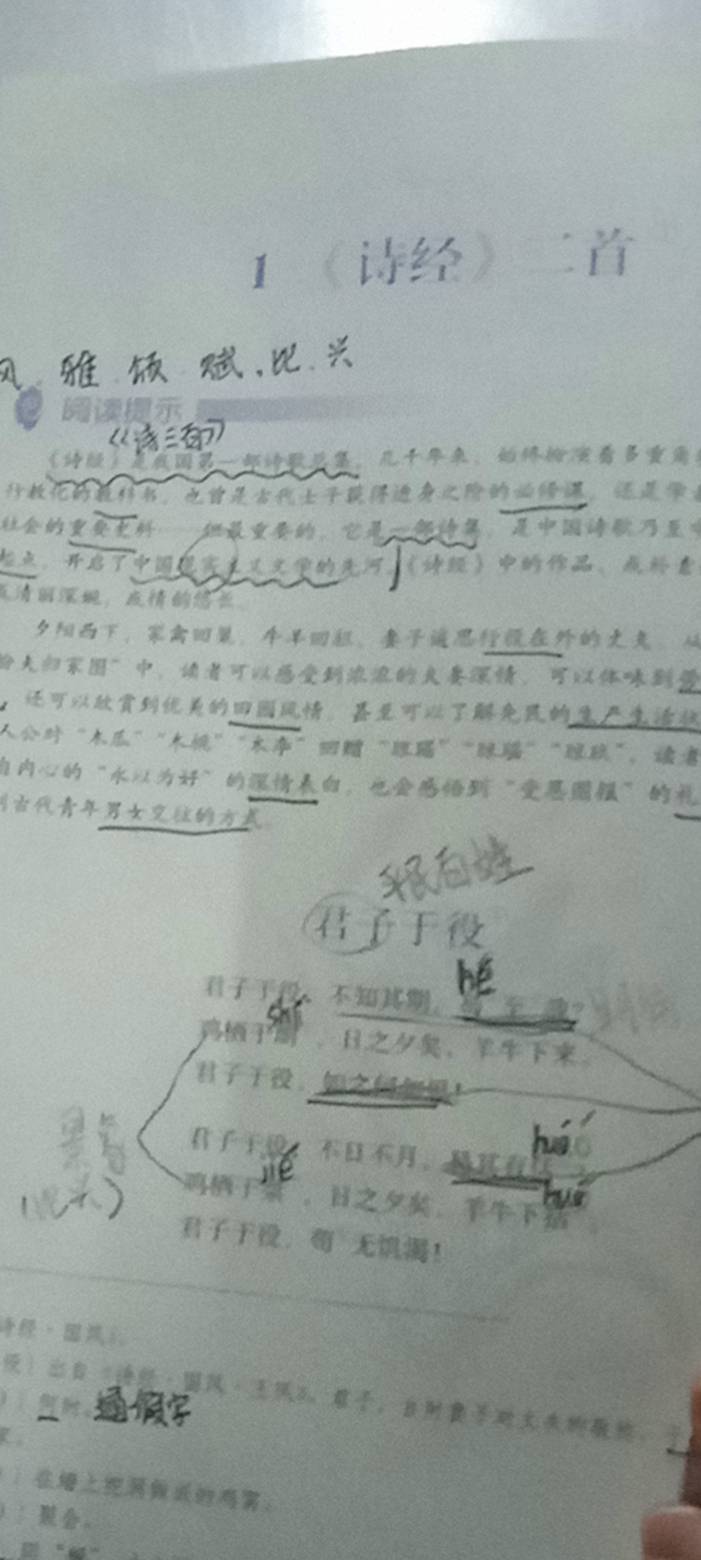 1 《诗经》二首
风 雅 颂 赋、比、兴
阅读提示
《诗三百》
《诗经》是我国第一部诗歌总集。几千年来，始终扮演着多重角
行教化的教科书，也曾是古代士子获得进身之阶的必修课，还是学
社会的重要史料……但最重要的，它是一部诗集，是中国诗歌乃至
起点，开启了中国现实主义文学的先河。《诗经》中的作品，或朴素
或清丽深婉，或情韵悠长。
夕阳西下，家禽回巢，牛羊回栏，妻子遥思行役在外的丈夫。从
盼夫归家图”中，读者可以感受到浓浓的夫妻深情，可以体味到
，还可以欣赏到优美的田园风情，甚至可以了解先民的生产生活状
人公对“木瓜”“木桃”“木李”回赠“琼琚”“琼瑶”“琼玖”，读者
自内心的“永以为好”的深情表白，也会感悟到“受恩图报”的礼
到古代青年男女交往的方式。
君子于役
hé
君子于役，不知其期，曷至哉？
shí
鸡栖于埘，日之夕矣，羊牛下来。
君子于役，如之何勿思！
huó
君子于役，不日不月，曷其有佸？
jié huó
鸡栖于桀，日之夕矣，羊牛下括。
君子于役，苟无饥渴！
诗经·国风》。
役〕出自《诗经·国风·王风》。君子，古时妻子对丈夫的敬称。于
〕何时。通假字
〕在墙上挖洞做成的鸡窝。
〕聚会。